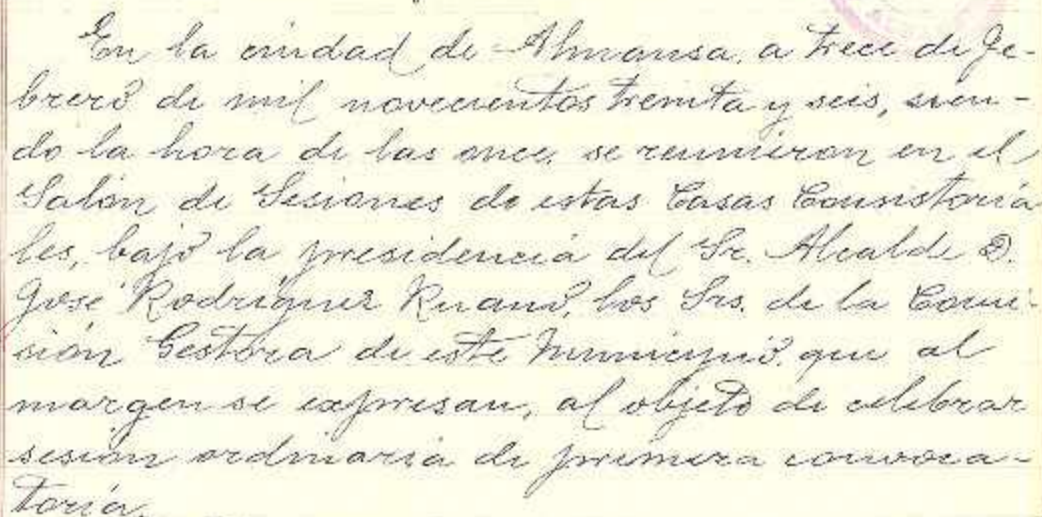 En la ciudad de Almansa, a trece de Fe-
brero de mil novecientos treinta y seis, sien-
do la hora de las once, se reunieron en el
Salón de Sesiones de estas Casas Consistoria
les, bajo la presidencia del Sr. Alcalde D.
José Rodríguez Ruano, los Srs. de la Comi-
sión Gestora de este Municipio, que al
margen se expresan, al objeto de celebrar
sesión ordinaria de primera convoca-
toria.